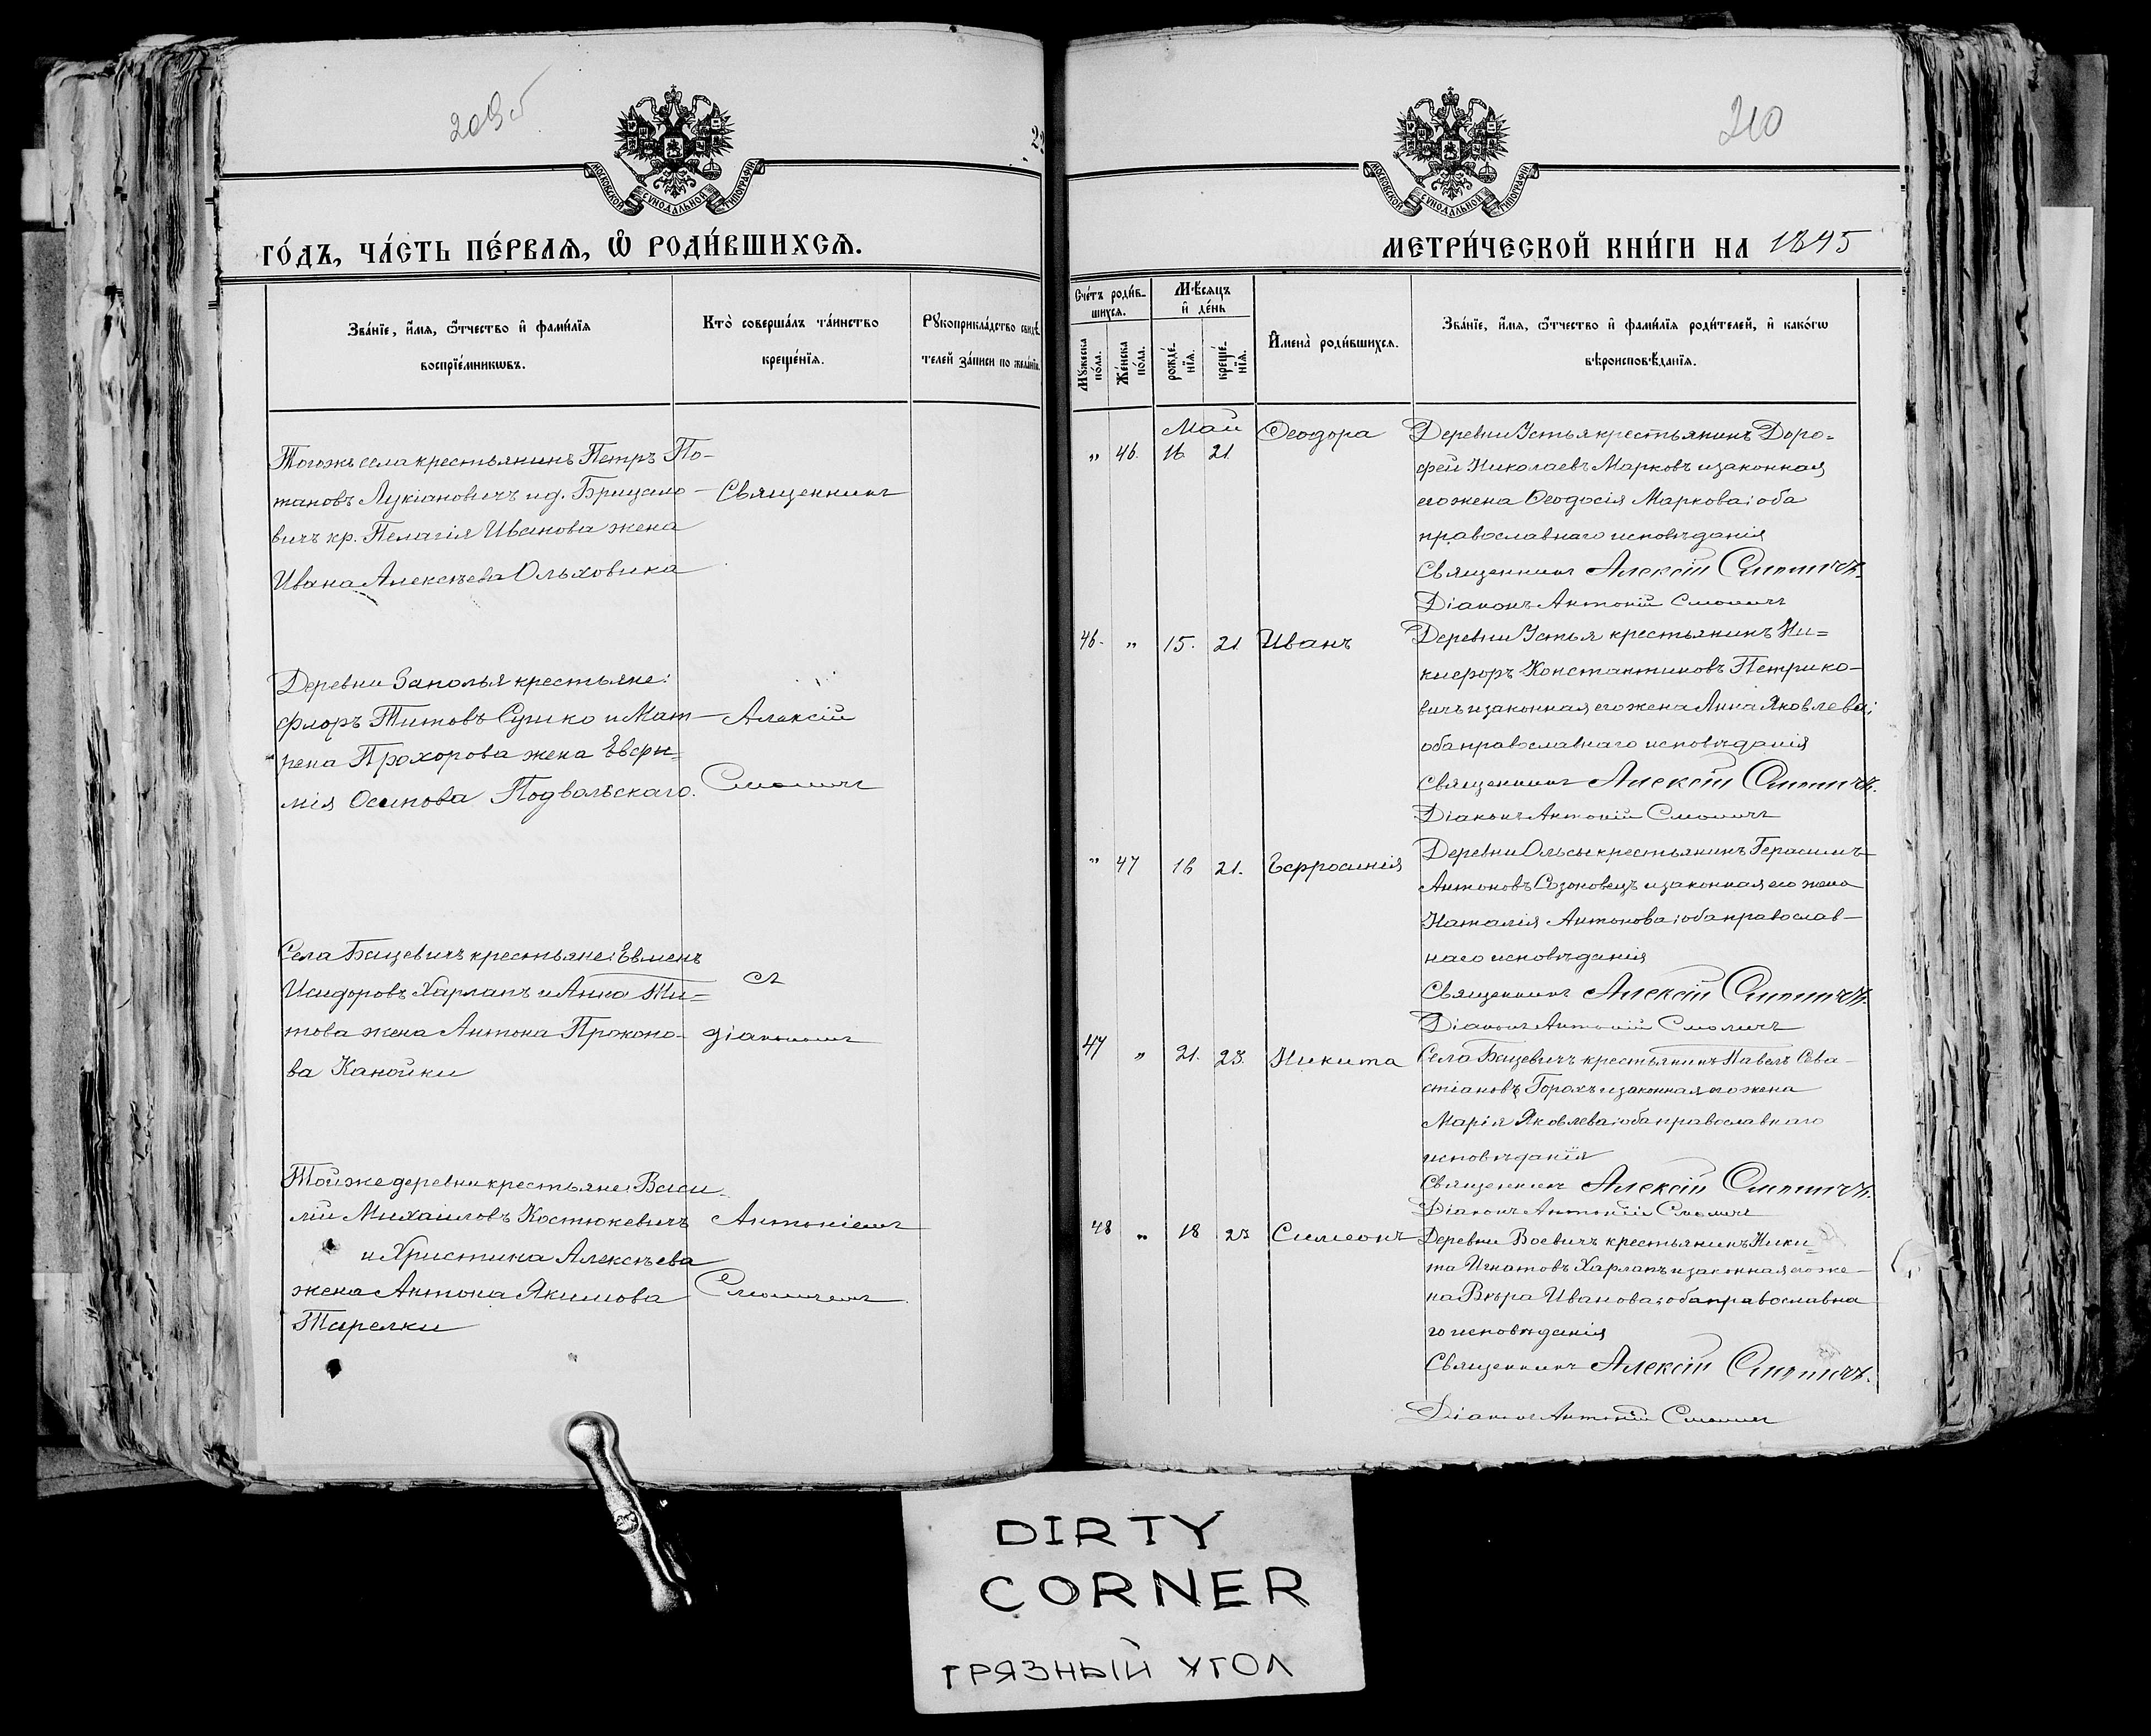 209 б
МОСКОВСКОЙ СѴНОДАЛЬНОЙ ТИПОГРАФІИ
ГО́ДЪ, ЧА́СТЬ ПЕ́РВАѦ, Ѽ РОДИ́ВШИХСѦ.
Зва́нїе, и҆́мѧ, ѻ҆́тчество и҆ фами́лїѧ
воспрїе́мникѡвъ.
Кто̀ соверша́лъ та́инство
креще́нїѧ.
Рꙋкоприкла́дство свидѣ́
телей за́писи по жела́нїю
Тогожъ села крестьянинъ Петръ По-
тановъ Лукіановичъ и д. Брицало-
вичъ кр. Пелагія Иванова жена
Ивана Алексѣева Ольховика
Священникъ
Деревни Заполья крестьяне:
Флоръ Титовъ Сушко и Мат-
рена Прохорова жена Евфи=
мія Осипова Подвольскаго.
Алексій
Смоличъ
Села Бацевичъ крестьяне: Евменъ
Исидоровъ Харлапъ и Анна Ти=
това жена Антона Прокопо-
ва Канойки
съ
діакономъ
Той же деревни крестьяне: Васи-
лій Михаиловъ Костюкевичъ
и Христина Алексѣева
жена Антона Якимова
Тарелки
Антоніемъ
Смоличемъ
210
МОСКОВСКОЙ СѴНОДАЛЬНОЙ ТИПОГРАФІИ
МЕТРИ́ЧЕСКОЙ КНИ́ГИ НА 1895
Сче́тъ роди́в-
шихсѧ.
Мꙋ́жеска
по́ла.
Же́нска
по́ла.
Мѣ́сѧцъ
и҆ де́нь
рожде́-
нїѧ.
креще́-
нїѧ.
И҆мена̀ роди́вшихсѧ.
Зва́нїе, и҆́мѧ, ѻ҆́тчество и҆ фами́лїѧ роди́телей, и҆ како́гѡ
вѣроисповѣ́данїѧ.
Май
„ 46. 16. 21. Ѳеодора
Деревни Устья крестьянинъ Доро=
фей Николаевъ Марковъ и законная
его жена Ѳеодосія Маркова; оба
православнаго исповѣданія
Священникъ Алексій Смоличъ.
Діаконъ Антоній Смоличъ
46. „ 15. 21. Иванъ
Деревни Устья крестьянинъ Ни=
кифоръ Константиновъ Петрико-
вичъ и законная его жена Анна Яковлева;
оба православнаго исповѣданія
Священникъ Алексій Смоличъ.
Діаконъ Антоній Смоличъ
„ 47 16 21. Ефросинія
Деревни Ольсы крестьянинъ Герасимъ
Антоновъ Созоновецъ и законная его жена
Наталія Антонова; оба православ-
наго исповѣданія
Священникъ Алексій Смоличъ.
Діаконъ Антоній Смоличъ
47 „ 21. 23. Никита
Села Бацевичъ крестьянинъ Павелъ Сева-
стіановъ Горахъ и законная его жена
Марія Яковлева; оба православнаго
исповѣданія
Священникъ Алексій Смоличъ.
Діаконъ Антоній Смоличъ
48 „ 18 23 Симеонъ
Деревни Воевичъ крестьянинъ Ники=
та Игнатовъ Харлапъ и законная его же-
на Вѣра Иванова; оба православна
го исповѣданія
Священникъ Алексій Смоличъ.
Діаконъ Антоній Смоличъ
DIRTY
CORNER
ГРЯЗНЫЙ УГОЛ